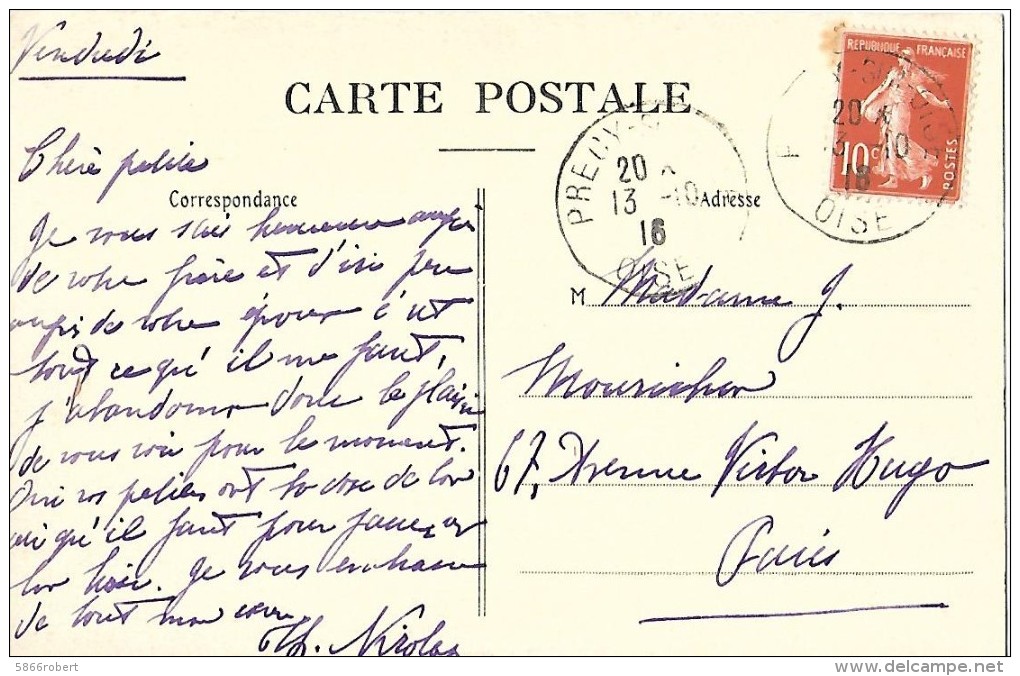 Vendredi
CARTE POSTALE
Chère petite
Correspondance
Je vous sais heureuse auprès
de votre frère et d'ici peu
auprès de votre époux c'est
tout ce qu'il me faut,
j'abandonne donc le plaisir
de vous voir pour le moment.
Oui vos petites ont la dose de
qu'il faut pour
Je vous embrasse
de tout mon cœur
Th. Nicolas
RÉPUBLIQUE FRANÇAISE
10c
POSTES
PRECY-S
20
13 -10
16
OISE
20
13 -10
16
OISE
Adresse
M Madame J.
67, Avenue Victor Hugo
Paris
5866robert
delcampe.net